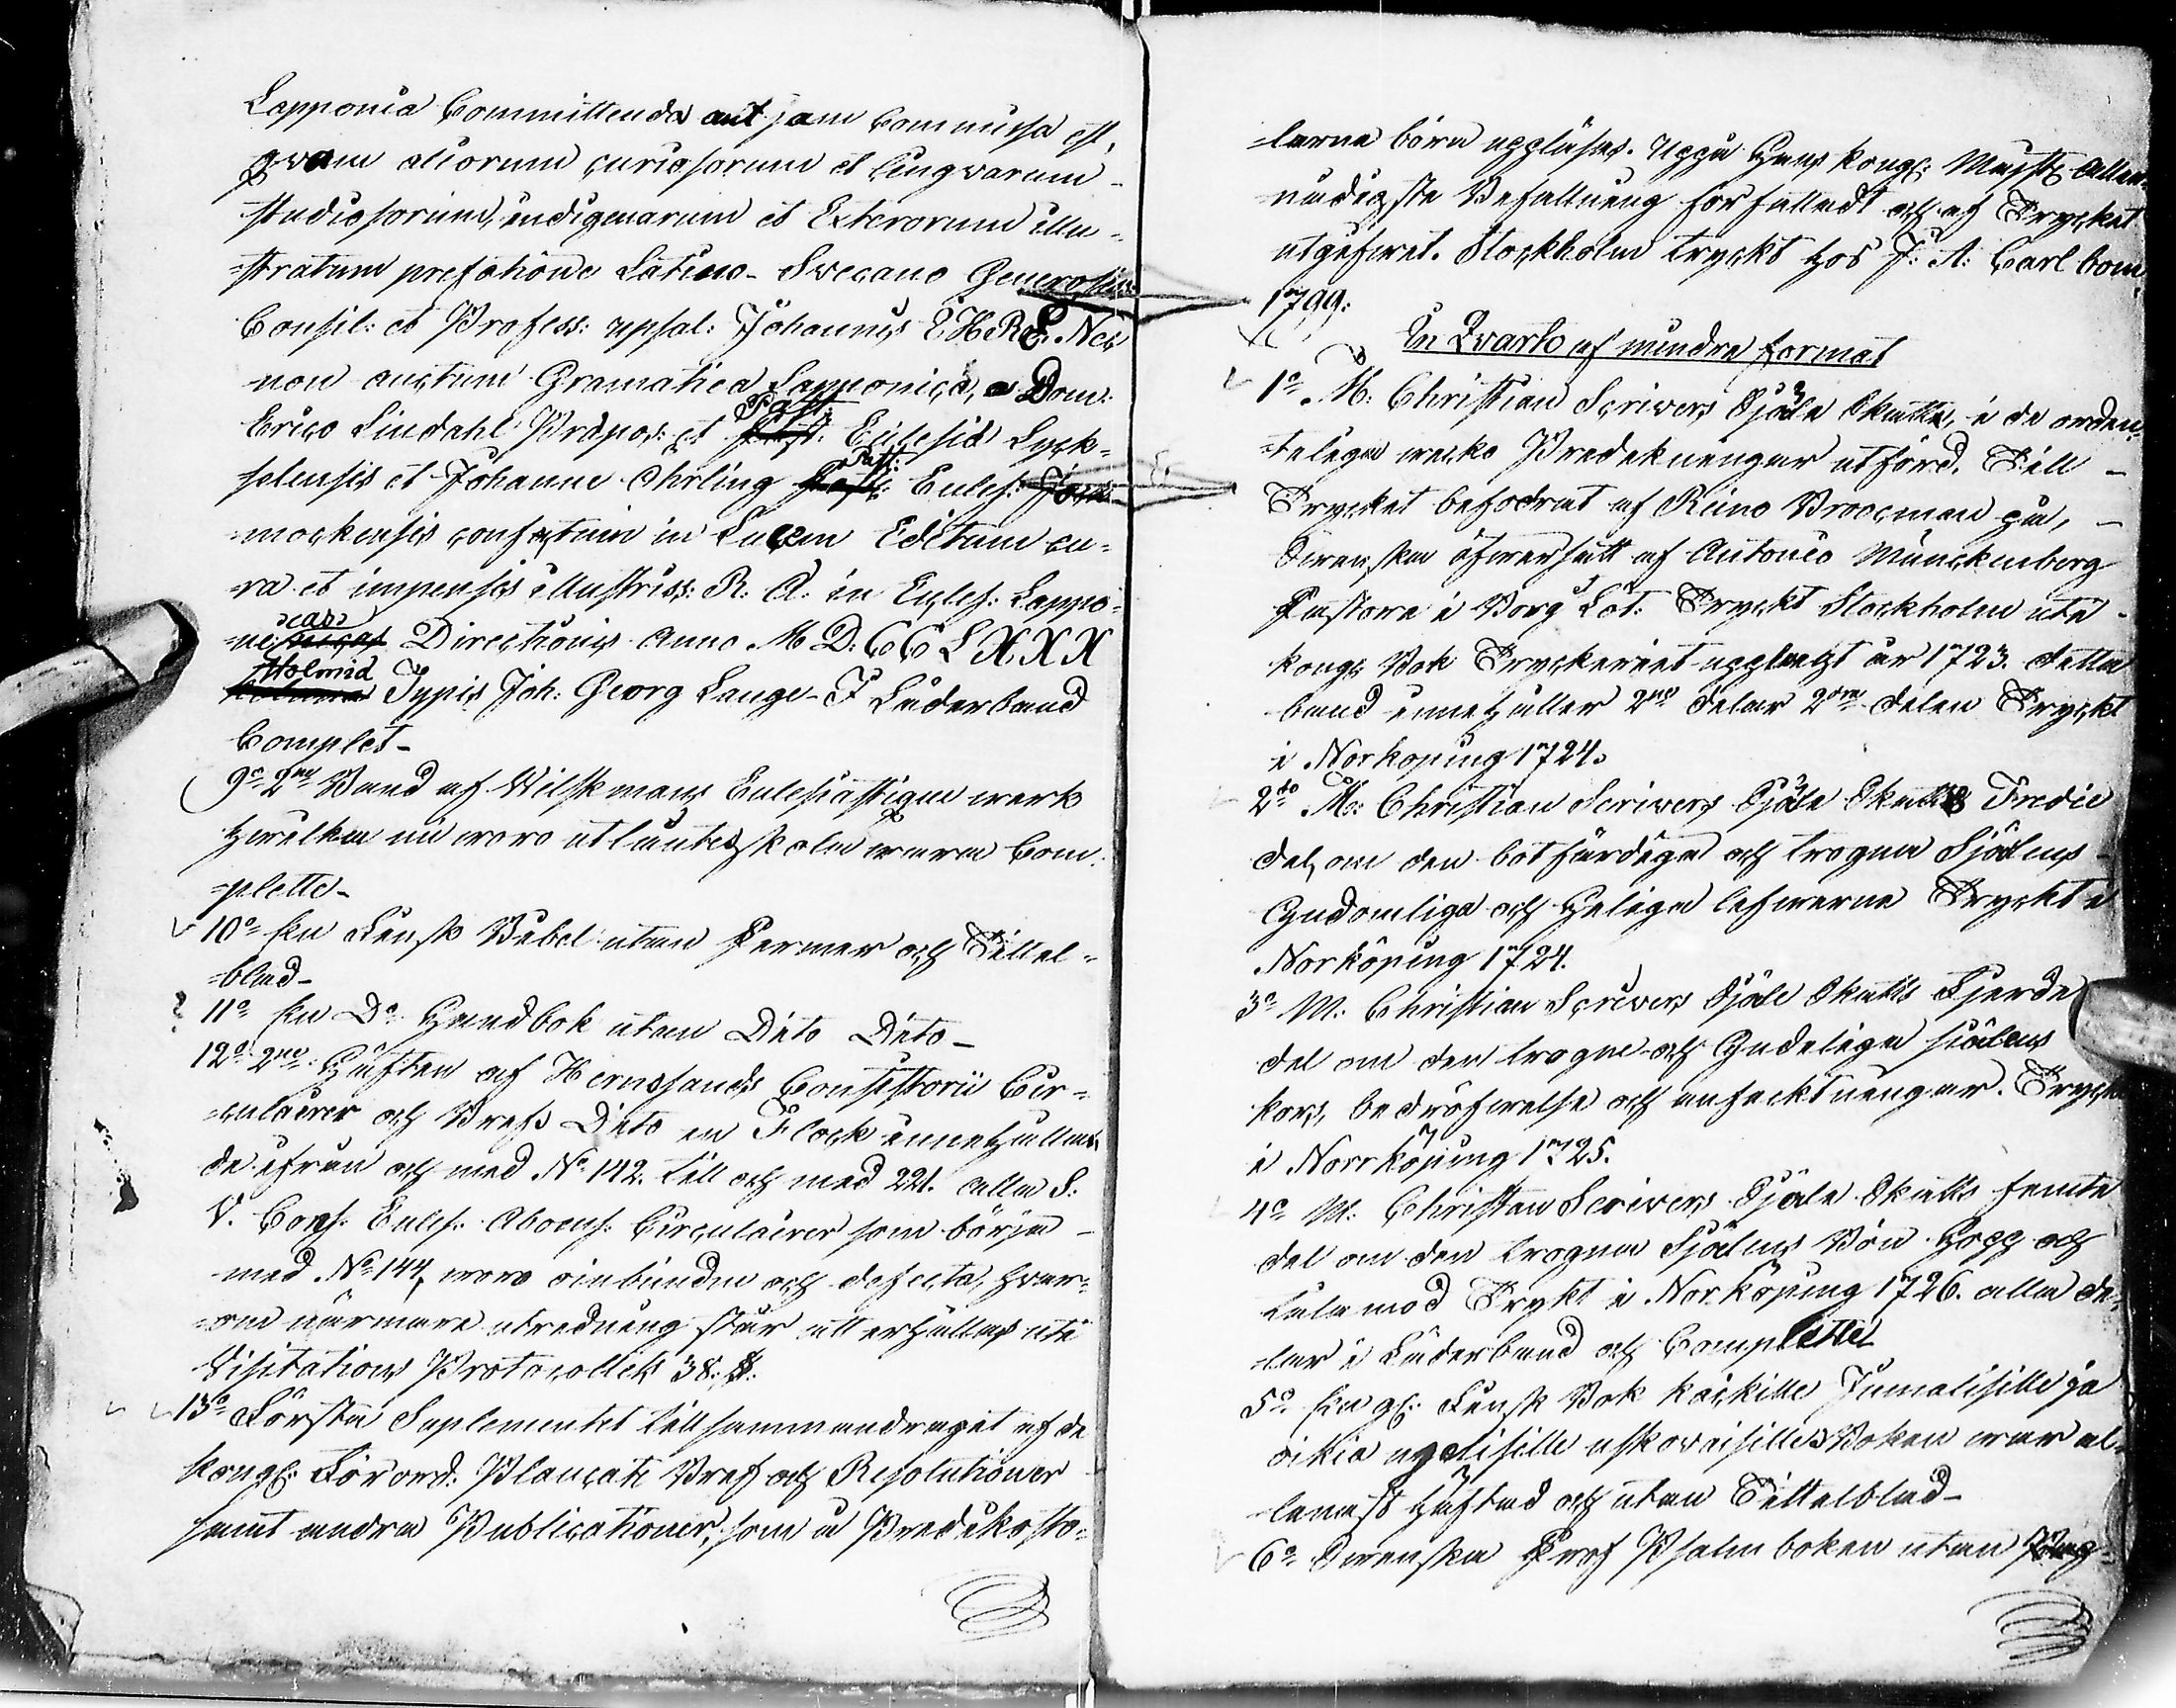 Lapponia Committenda aut jam Commissa est,
qvam aliorum curiosorum et lingvarum
studiosorum, indigenarum et Exterorum illu-
=stratum prefatione Latino-Svecano Generosiss:
Consil: et Profess: upsal: Johannis IHRE. Nec
non auctum Gramatica Lapponica, a Dom:
Erico Lindahl Præpos: et Past: Eclesiæ Lyck-
selensis et Johanne Öhrling Past: Ecles: Jock-
=mockensis confectum in Lucem Editum cu-
ra et impensis illustriss: R. A: in Ecles: Lappo-
nicas Directionis Anno M D. CC LXXX
Holmiæ Typis Joh: Georg Lange- I Läderband
Complet-
9o 2ne Band af Wilskmans Eclesiastique werk
hwilka nu woro utlånte skola wara Com-
=plette-
10o En Finsk Bibel utan Permar och Tittel-
=blad-
11o En Do Handbok utan Dito Dito-
12o 2ne Häften af Hernosands Consistorii Cir-
=culairer och Bref Dito en Flock innehållan-
de ifrån och med No 142. till och med 221. alla S:
V. Cons. Ecles. Aboens: Circulairer som börja
med No 144, woro oinbundne och defecta, hwar-
om närmare utredning står att erhållas uti
Visitations Protocollets 38: §.
13o Första Suplementet till sammandraget af de
Kongl: Förord: Placat: Bref och Resolutioner
samt andra Publicationer, som å Predikosto-
=larna böra uppläsas. Uppå Hans Kongl: Majsts Aller-
nådigste Befallning författadt och af Trycket
utgifwet. Stockholm tryckt hos J: A: Carlbom
1799:
In Qvarto af mindre format
1o M: Christian Scrivers Själa Skatt, i de orden-
=teliga wecko Predikningar utförd. Till
Trycket befodrat af Reino Broocman på,
Swenska öfwersatt af Antonio Münchenberg
Pastore i Borg Löt: Tryckt Stockholm uti
Kongl. Bok Tryckeriet upplagt år 1723. detta
band innehåller 2ne delar 2dra delen Tryckt
i Norkoping 1724.
2do M: Christian Scrivers Själa Skatts Tredie
del, om den botfärdiga och trogna Själens
Gudomliga och Heliga lefwerne Tryckt i
Norköping 1724.
3o M. Christian Scrivers Själe Skatts Fjerde
del om den trogne och Gudeliga siälens
kors, bedröfwelse och anfecktningar. Tryckt
i Norrköping 1725.
4o M. Christian Scrivers Själa Skatts femte
del om den trogna Själens Bön Hopp och
tålamod Trykt i Norköping 1726. alla de-
=lar i Läderband och Complette
5o En gl: Finsk Bok kaickille Jumalisille ja
oikia uskovaisille Boken war al-
lenast häftad och utan Tittelblad-
6o Swenska Prof Psalmboken utan